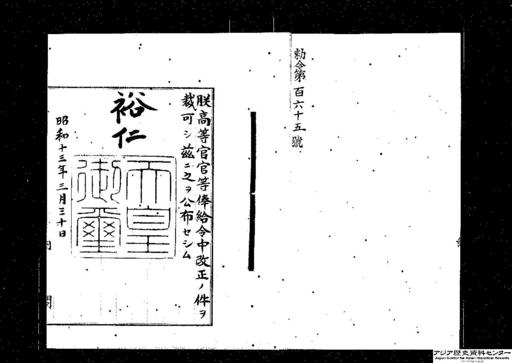 勅令第百六十五號
朕高等官官等俸給令中改正ノ件ヲ
裁可シ茲ニ之ヲ公布セシム
裕仁
天皇
御璽
昭和十三年三月三十日
アジア歴史資料センター
Japan Center for Asian Historical Records